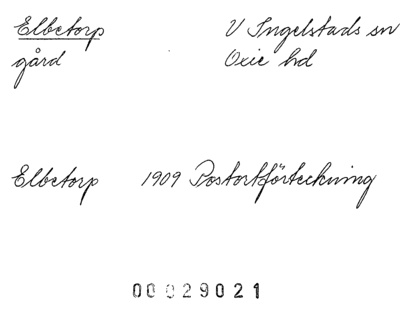 Elbetorp V Ingelstads sn
gård Oxie hd
Elbetorp 1909 Postortförteckning
00029021